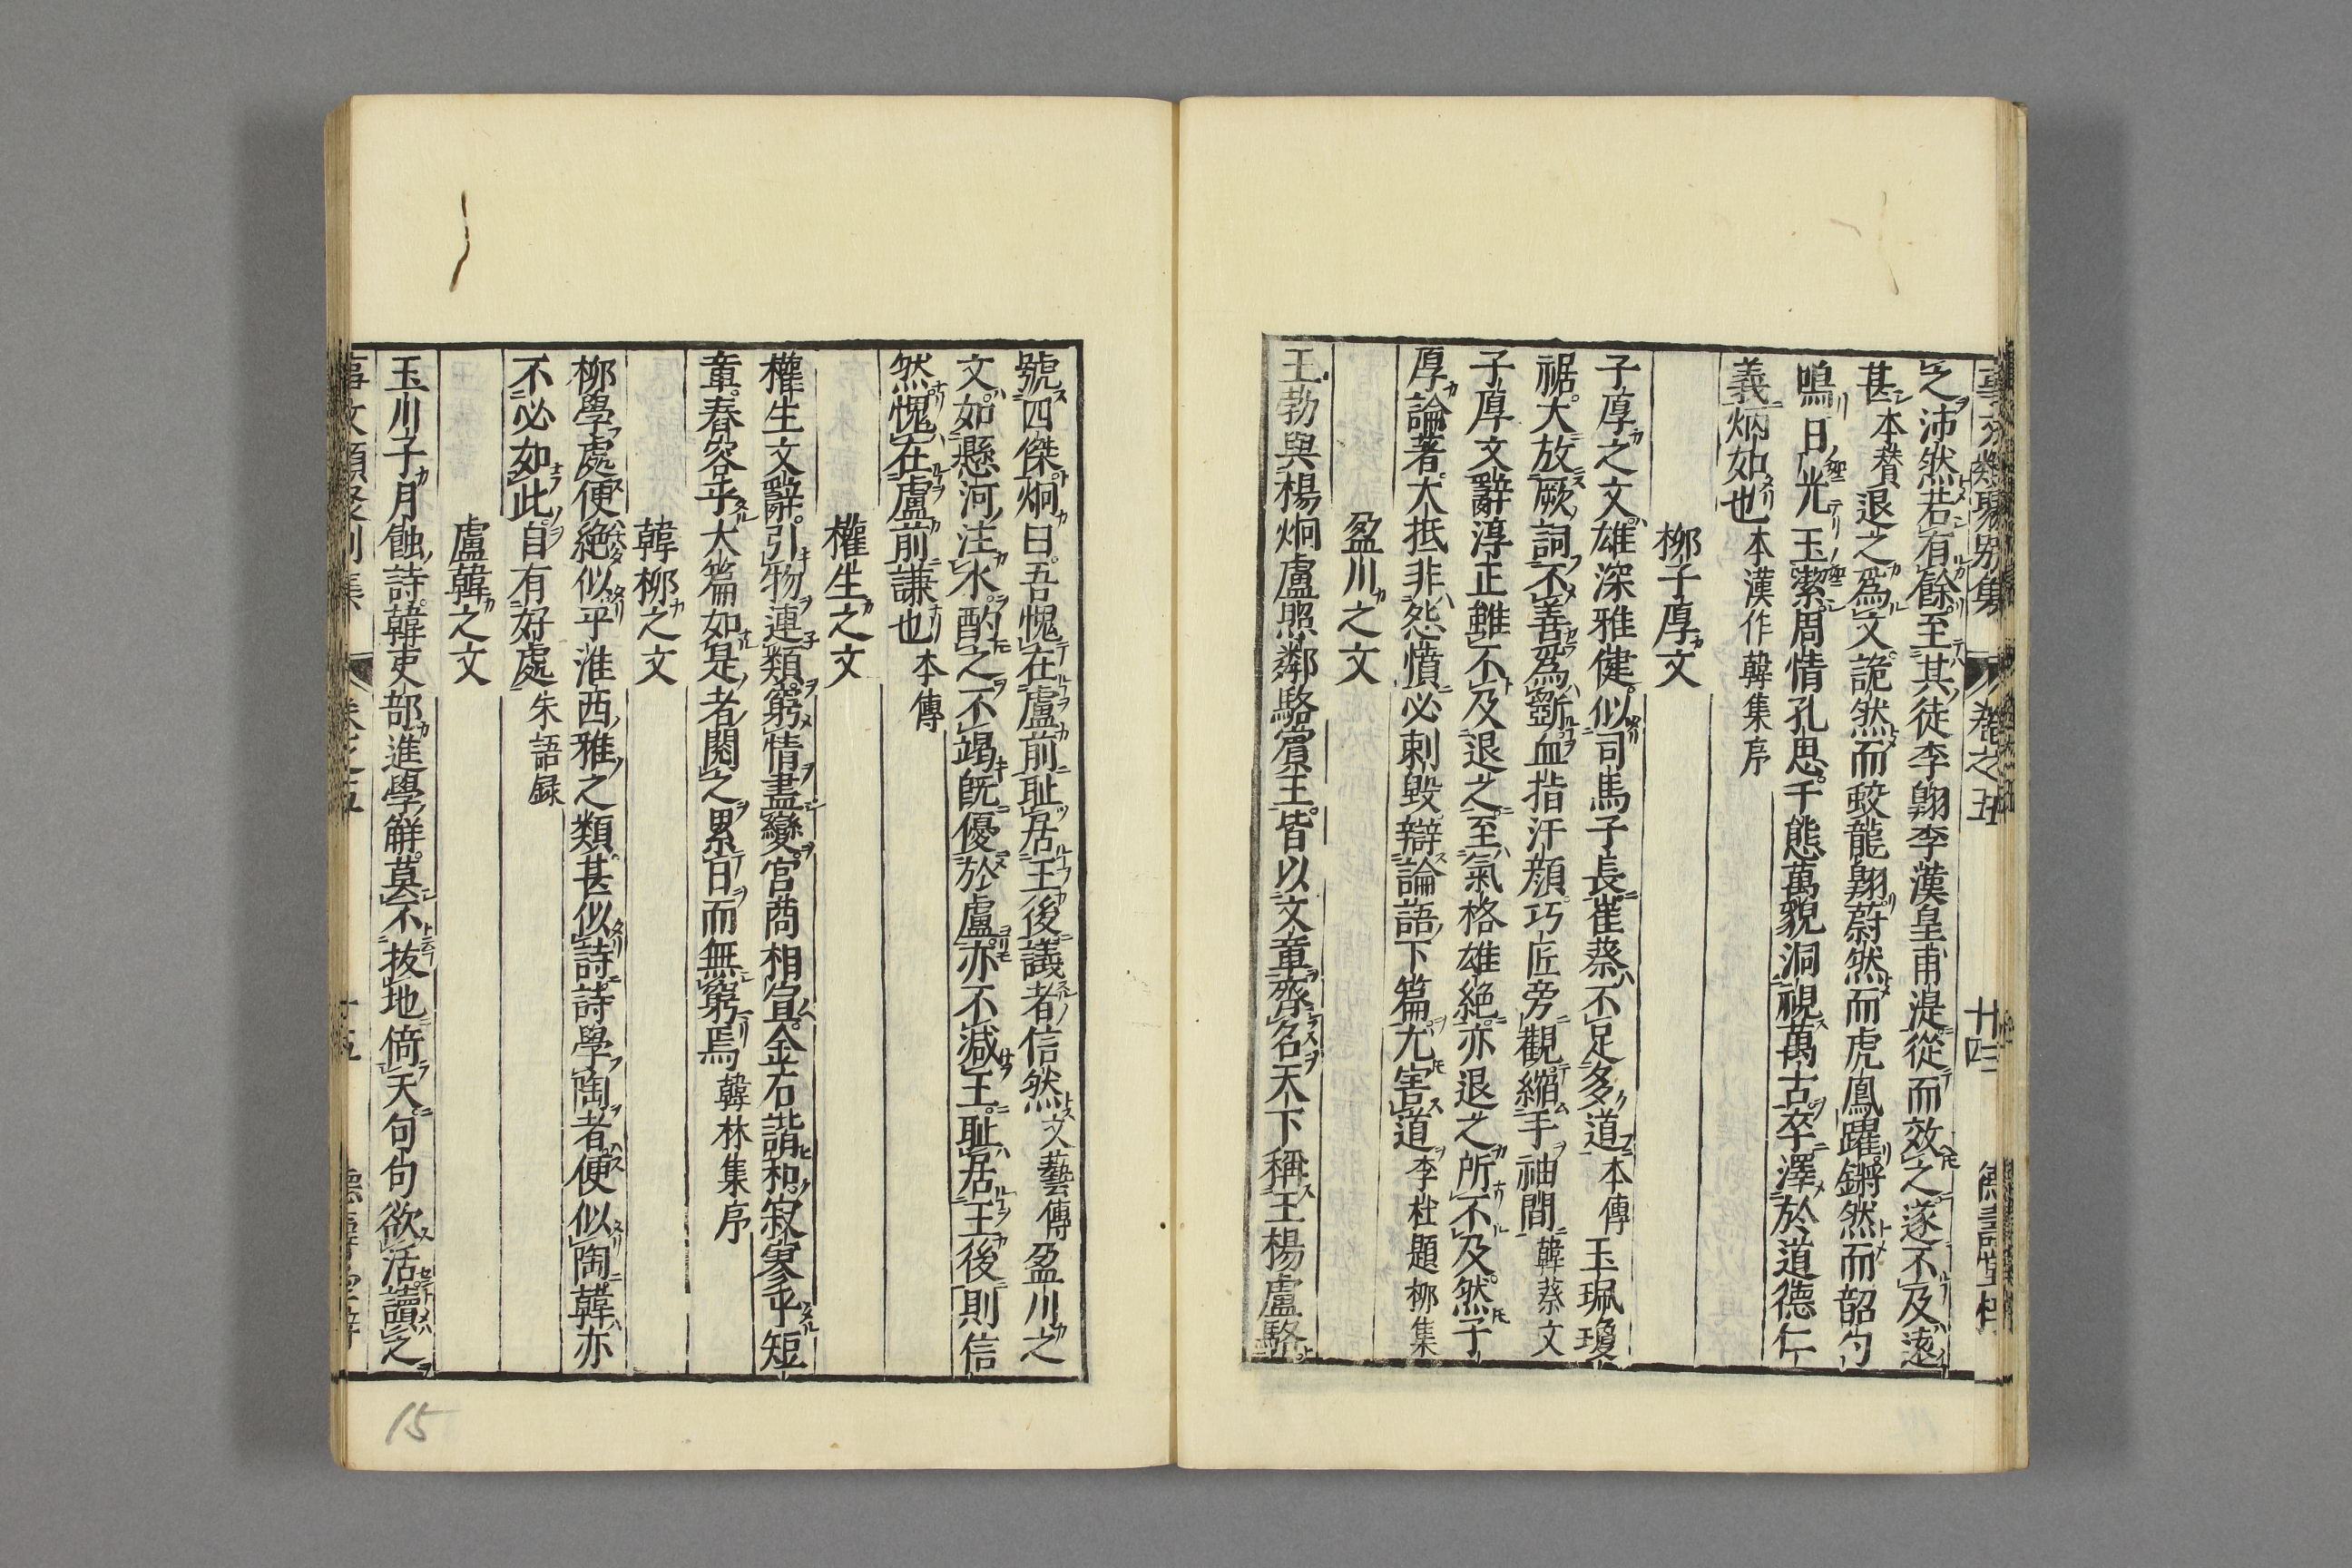 事文類聚別集 卷之五 廿四
之沛然若有餘至其徒李翺李漢皇甫湜從而效之遂不及遠
甚本贊退之爲文詭然而蛟龍翔蔚然而虎鳳躍鏘然而韶勻
鳴日光玉潔周情孔思千態萬貌洞視萬古卒澤於道德仁
義炳如也本漢作韓集序
柳子厚文
子厚之文雄深雅健似司馬子長崔蔡不足多道本傳玉珮瓊
裾大放厥詞不善爲斲血指汗顏巧匠旁觀縮手袖間韓蔡文
子厚文辭淳正雖不及退之至氣格雄絶亦退之所不及然子
厚論著大抵非怨憤必刺毀辯論語下篇尤害道李杜題柳集
盈川之文
王勃與楊炯盧照鄰駱賓王皆以文章齊名天下稱王楊盧駱
號四傑炯曰吾愧在盧前耻居王後議者信然文藝傳盈川之
文如懸河注水酌之不竭旣優於盧亦不减王耻居王後則信
然愧在盧前謙也本傳
權生之文
權生文辭引物連類窮情盡變宮商相宣金石諧和寂寥乎短
章春容乎大篇如是者閱之累日而無窮焉韓林集序
韓柳之文
柳學處便絶似平淮西雅之類甚似詩詩學陶者便似陶韓亦
不必如此自有好處朱語録
盧韓之文
玉川子月蝕詩韓吏部進學解莫不拔地倚天句句欲活讀之
事文類聚別集 卷之五 十五